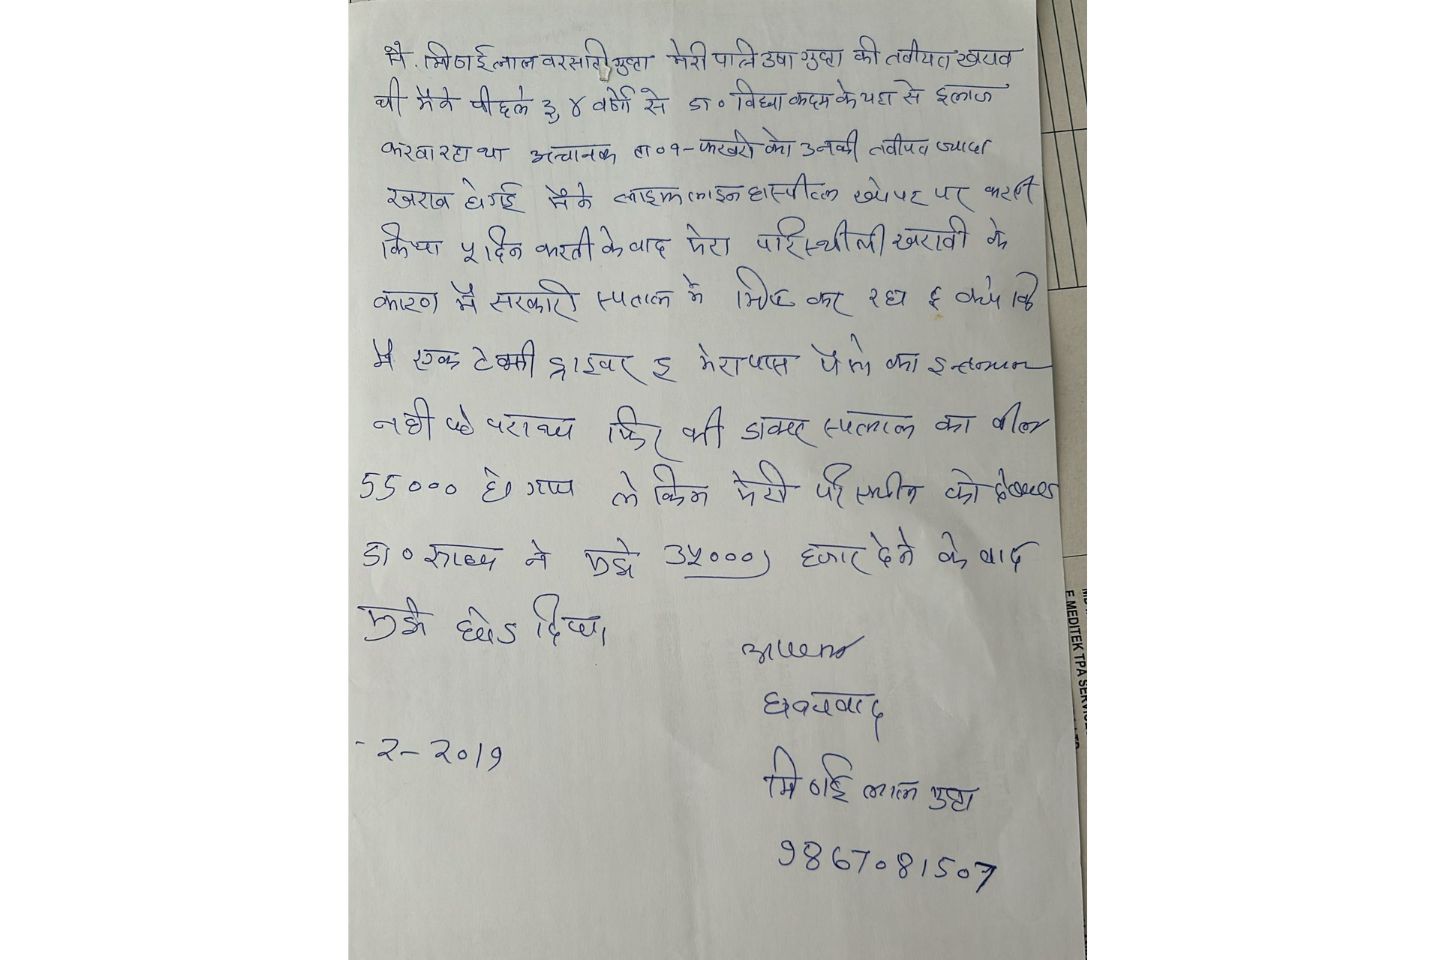 मै. मिठाईलाल वरसाती गुप्ता मेरी पत्नि उषा गुप्ता की तबीयत खराब
थी मैने पीछले ३,४ वर्षो से डा० विद्या कदम के यहा से इलाज
करवा रहा था अचानक ता० १-फरवरी को उनकी तबीयत ज्यादा
खराब होगई मैने लाइफ लाइन हास्पीटल पर भरती
किया ५ दिन भरती के बाद मेरा परिस्थीती खराबी के
कारण मै सरकारी स्पताल मे कर रहा हु क्यो कि
मै एक टेक्सी ड्राइवर हु मेरा पास पैसे का इन्तजाम
नही हो परा था फिर भी डाक्टर स्पताल का बील
55000 हो गया लेकिन मेरी परिस्थीति को देखकर
डा० साहब ने मुझे 35000) हजार देने के बाद
मुझे छोड दिया।
आपका
धन्यवाद
-२-2019
मिठाई लाल गुप्ता
9867081507
F MEDITEK TPA SERVICE